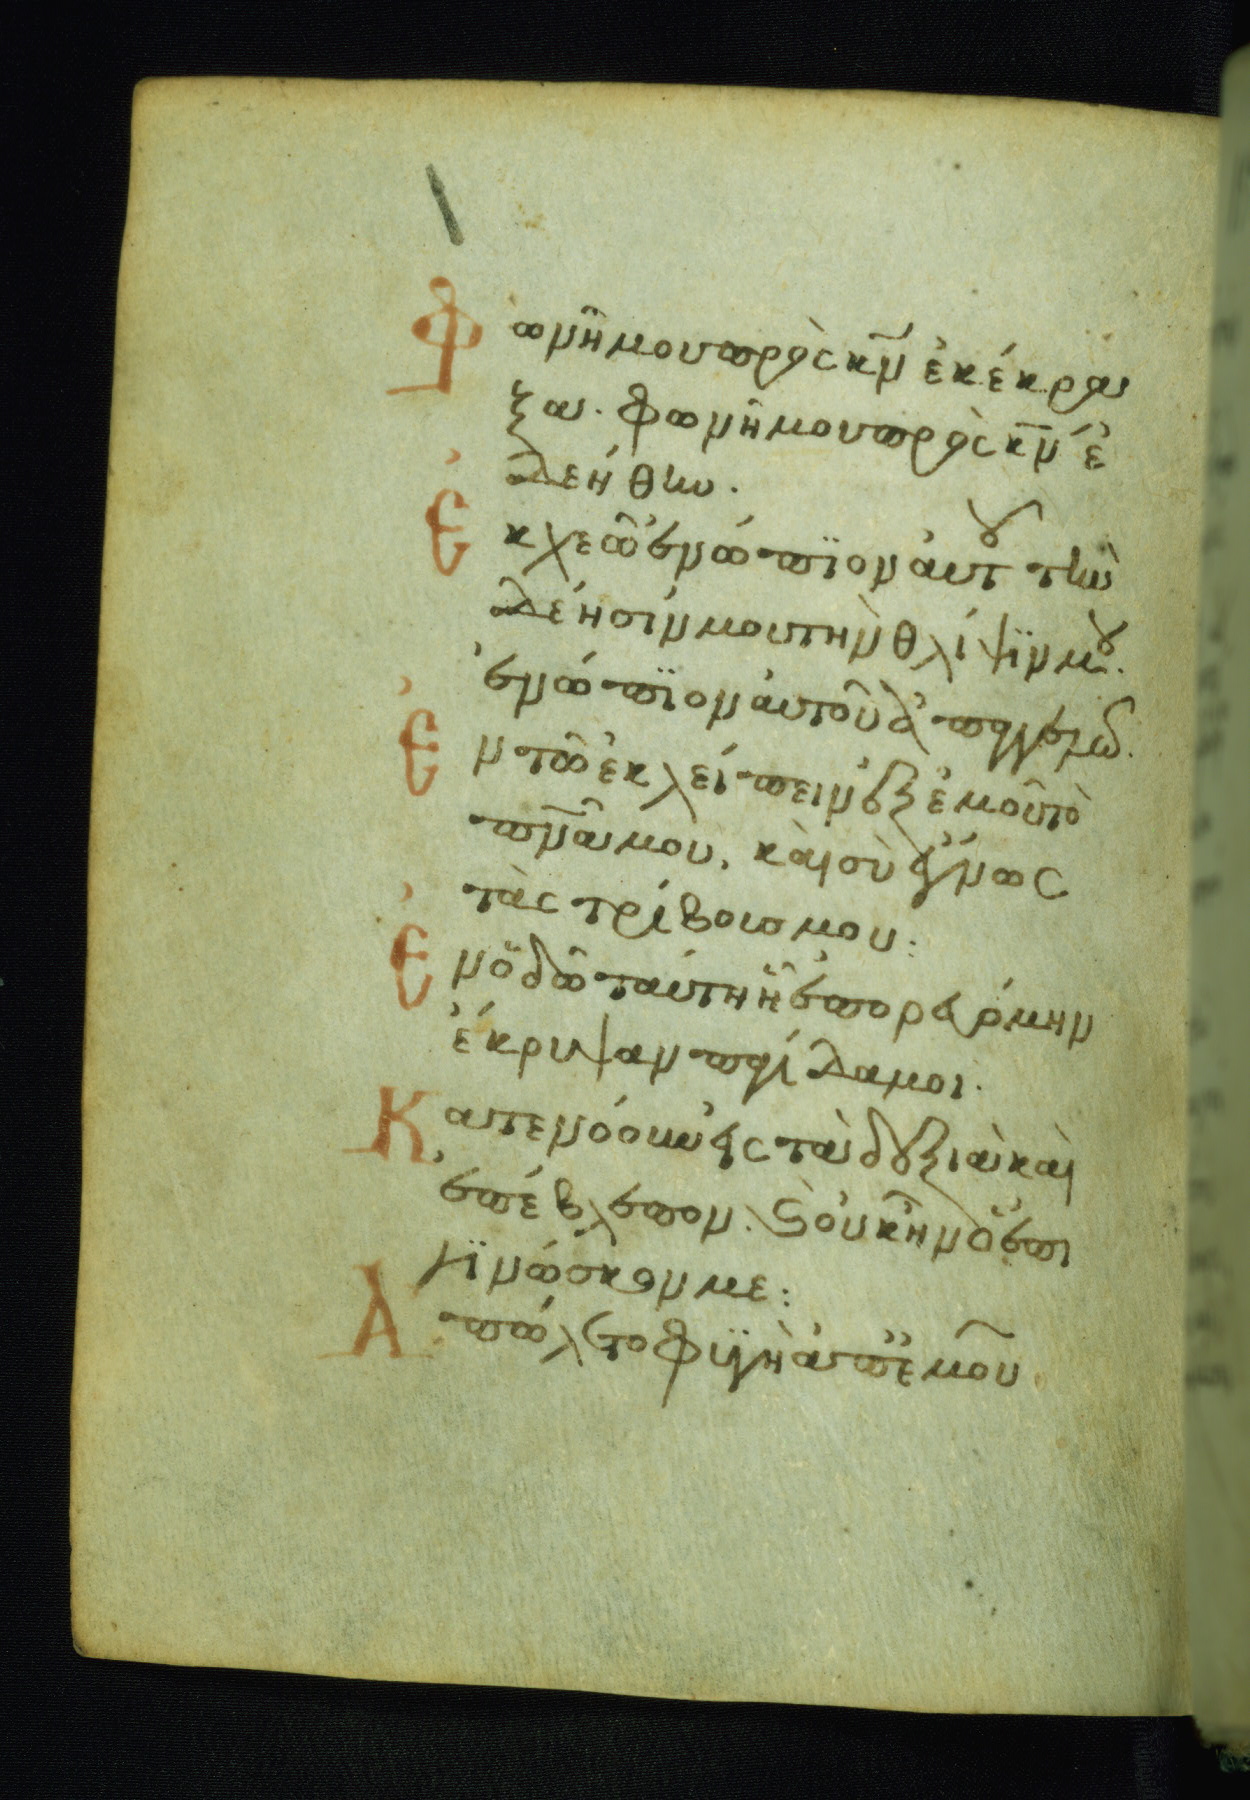 Φωνῆ μου πρὸς κν̅ ἐκέκρα
ξα. φωνῆ μου πρὸς κν̅ ἐ
δεήθην.
Ἐκχεῶ ἐνώπϊον αὐτου τὴν
δέησίν μου τὴν θλίψϊν μου.
ἐνώπϊον αὐτοῦ ἀπαγγελῶ.
Ἐν τῶ ἐκλείπειν ἐξ ἐμοῦ τὸ
πν̅α̅ μου, καὶ σὺ ἔγνως
τὰς τρίβους μου:
Ἐν ὁδῶ ταύτη ἧ ἐπορευόμην
ἔκρυψαν παγίδα μοι.
Κατενόουν εἰς τὰ δεξιὰ καὶ
ἐπέβλεπον. ϗ οὐκ ἦν ὁ ἐπι
γϊνώσκων με:
Ἀπώλετο φυγὴ ἀπ ἐμοῦ